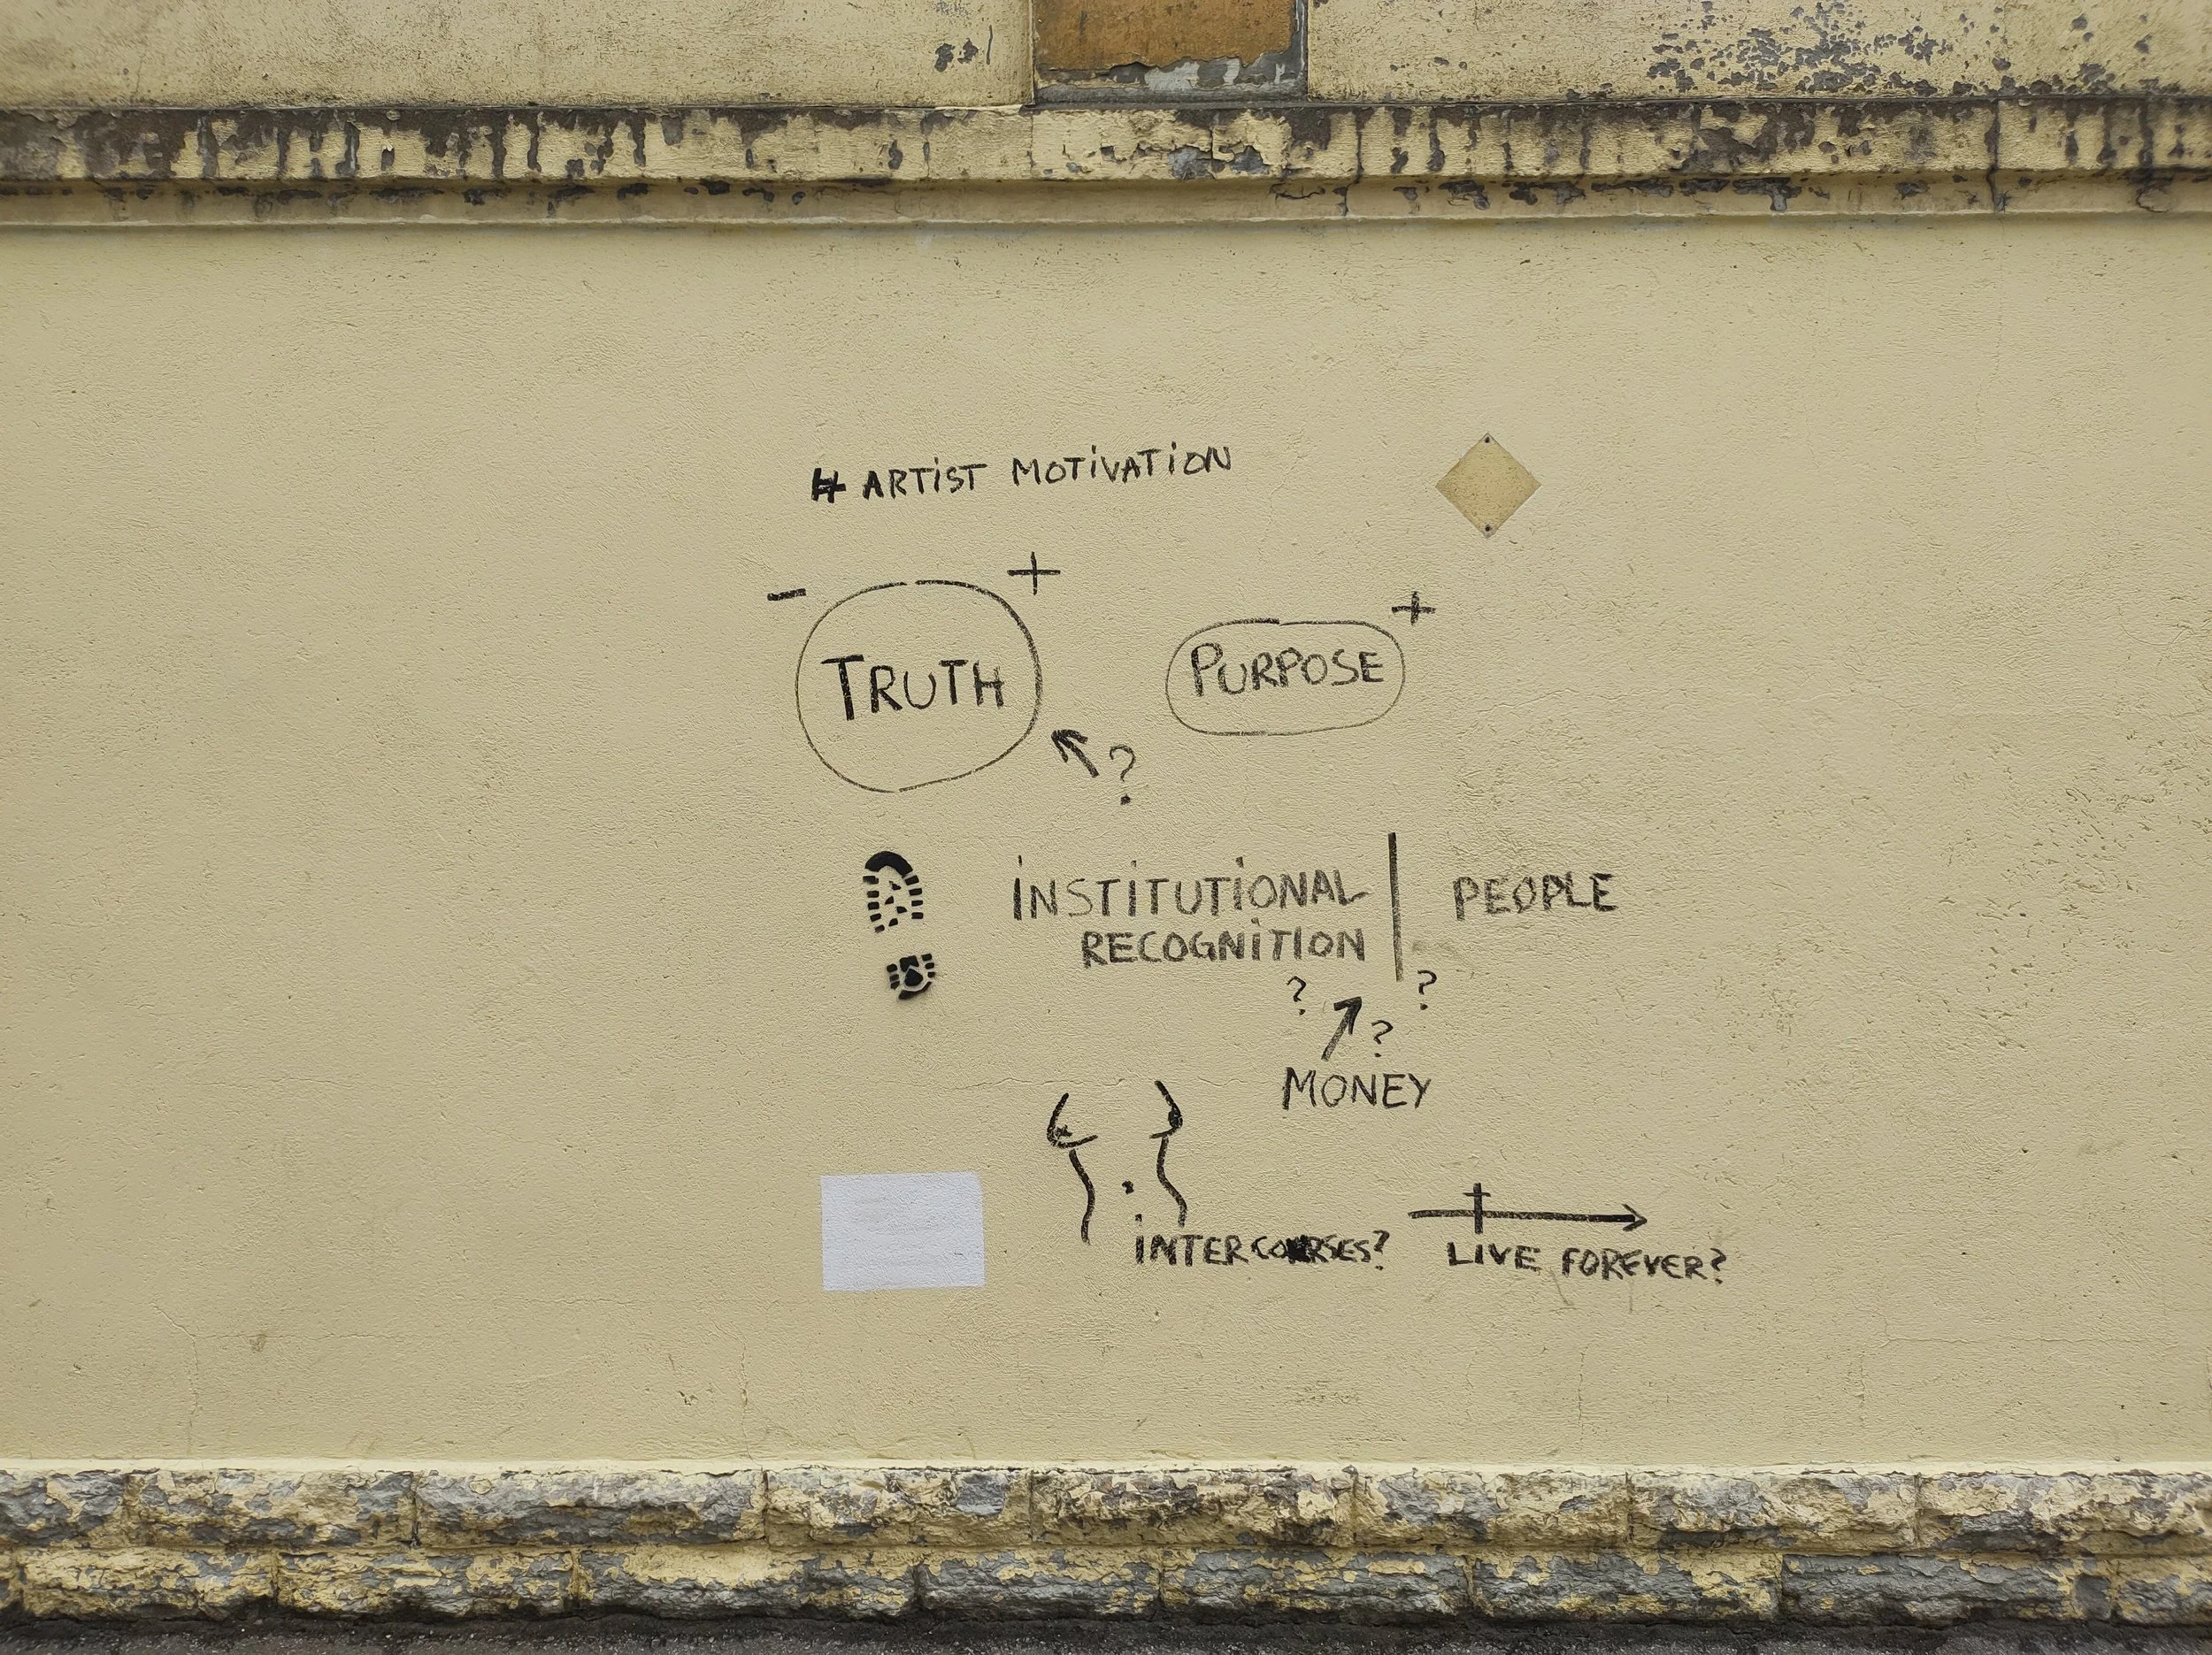 # ARTiST MOTiVATiON
- +
TRUTH
+
PURPOSE
?
iNSTiTUTiONAL
RECOGNiTiON
PEOPLE
? ?
?
MONEY
iNTERCOURSES?
LIVE FOREVER?